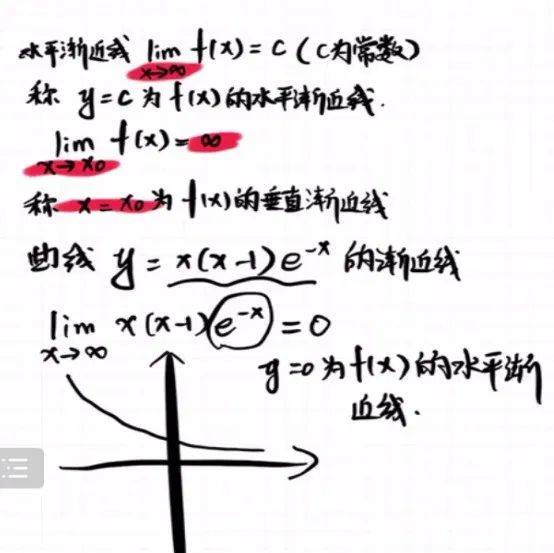 水平渐近线 lim x→∞ f(x) = C (C为常数)
称 y=c 为 f(x) 的水平渐近线.
lim x→x₀ f(x) = ∞
称 x = x₀ 为 f(x) 的垂直渐近线
曲线 y = x(x-1)e⁻ˣ 的渐近线
lim x→∞ x(x-1)e⁻ˣ = 0
y=0 为 f(x) 的水平渐
近线.